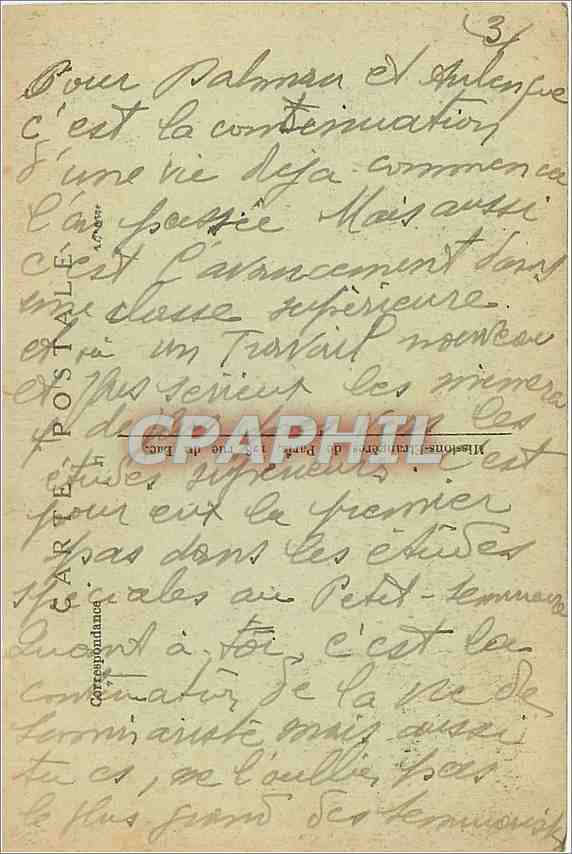 3
Pour et
c'est la continuation
d'une vie deja commencee
l'an passée Mais aussi
c'est l'avancement dans
une classe supérieure
et à un Travail nouveau
et plus serieux les
de plus les
études c'est
pour eux le premier
pas dans les études
spéciales au Petit-seminaire
Quant à toi, c'est la
continuation de la vie de
seminariste mais aussi
tu es, ne l'oublie pas
le plus grand des seminaristes
CARTE POSTALE
Correspondance
Missions-Etrangères de Paris, 128, rue du Bac.
CPAPHIL